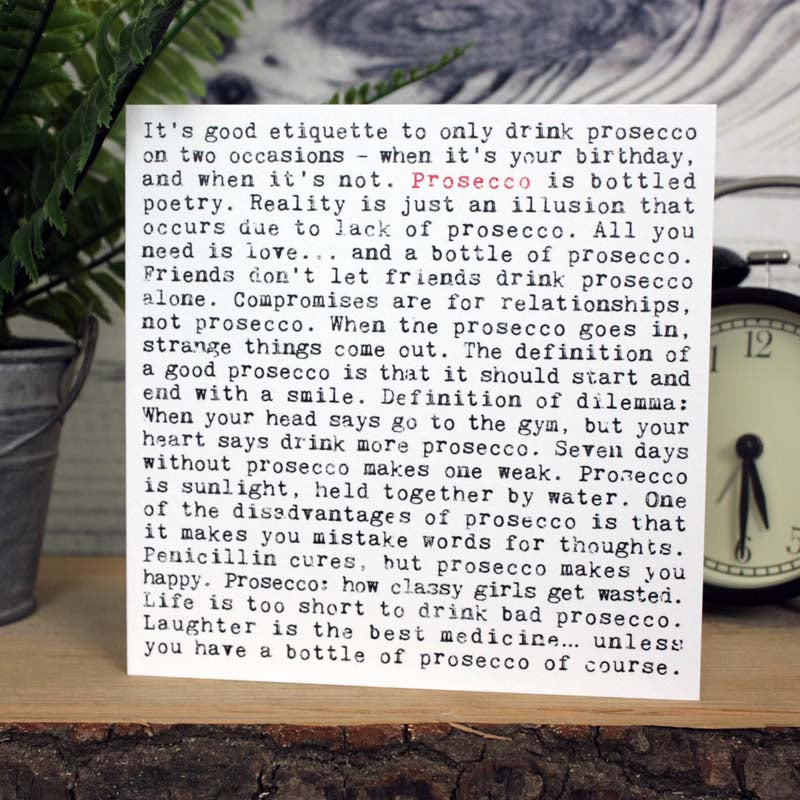 It's good etiquette to only drink prosecco
on two occasions - when it's your birthday,
and when it's not. Prosecco is bottled
poetry. Reality is just an illusion that
occurs due to lack of prosecco. All you
need is love... and a bottle of prosecco.
Friends don't let friends drink prosecco
alone. Compromises are for relationships,
not prosecco. When the prosecco goes in,
strange things come out. The definition of
a good prosecco is that it should start and
end with a smile. Definition of dilemma:
When your head says go to the gym, but your
heart says drink more prosecco. Seven days
without prosecco makes one weak. Prosecco
is sunlight, held together by water. One
of the disadvantages of prosecco is that
it makes you mistake words for thoughts.
Penicillin cures, but prosecco makes you
happy. Prosecco: how classy girls get wasted.
Life is too short to drink bad prosecco.
Laughter is the best medicine... unless
you have a bottle of prosecco of course.
1
12
5
6